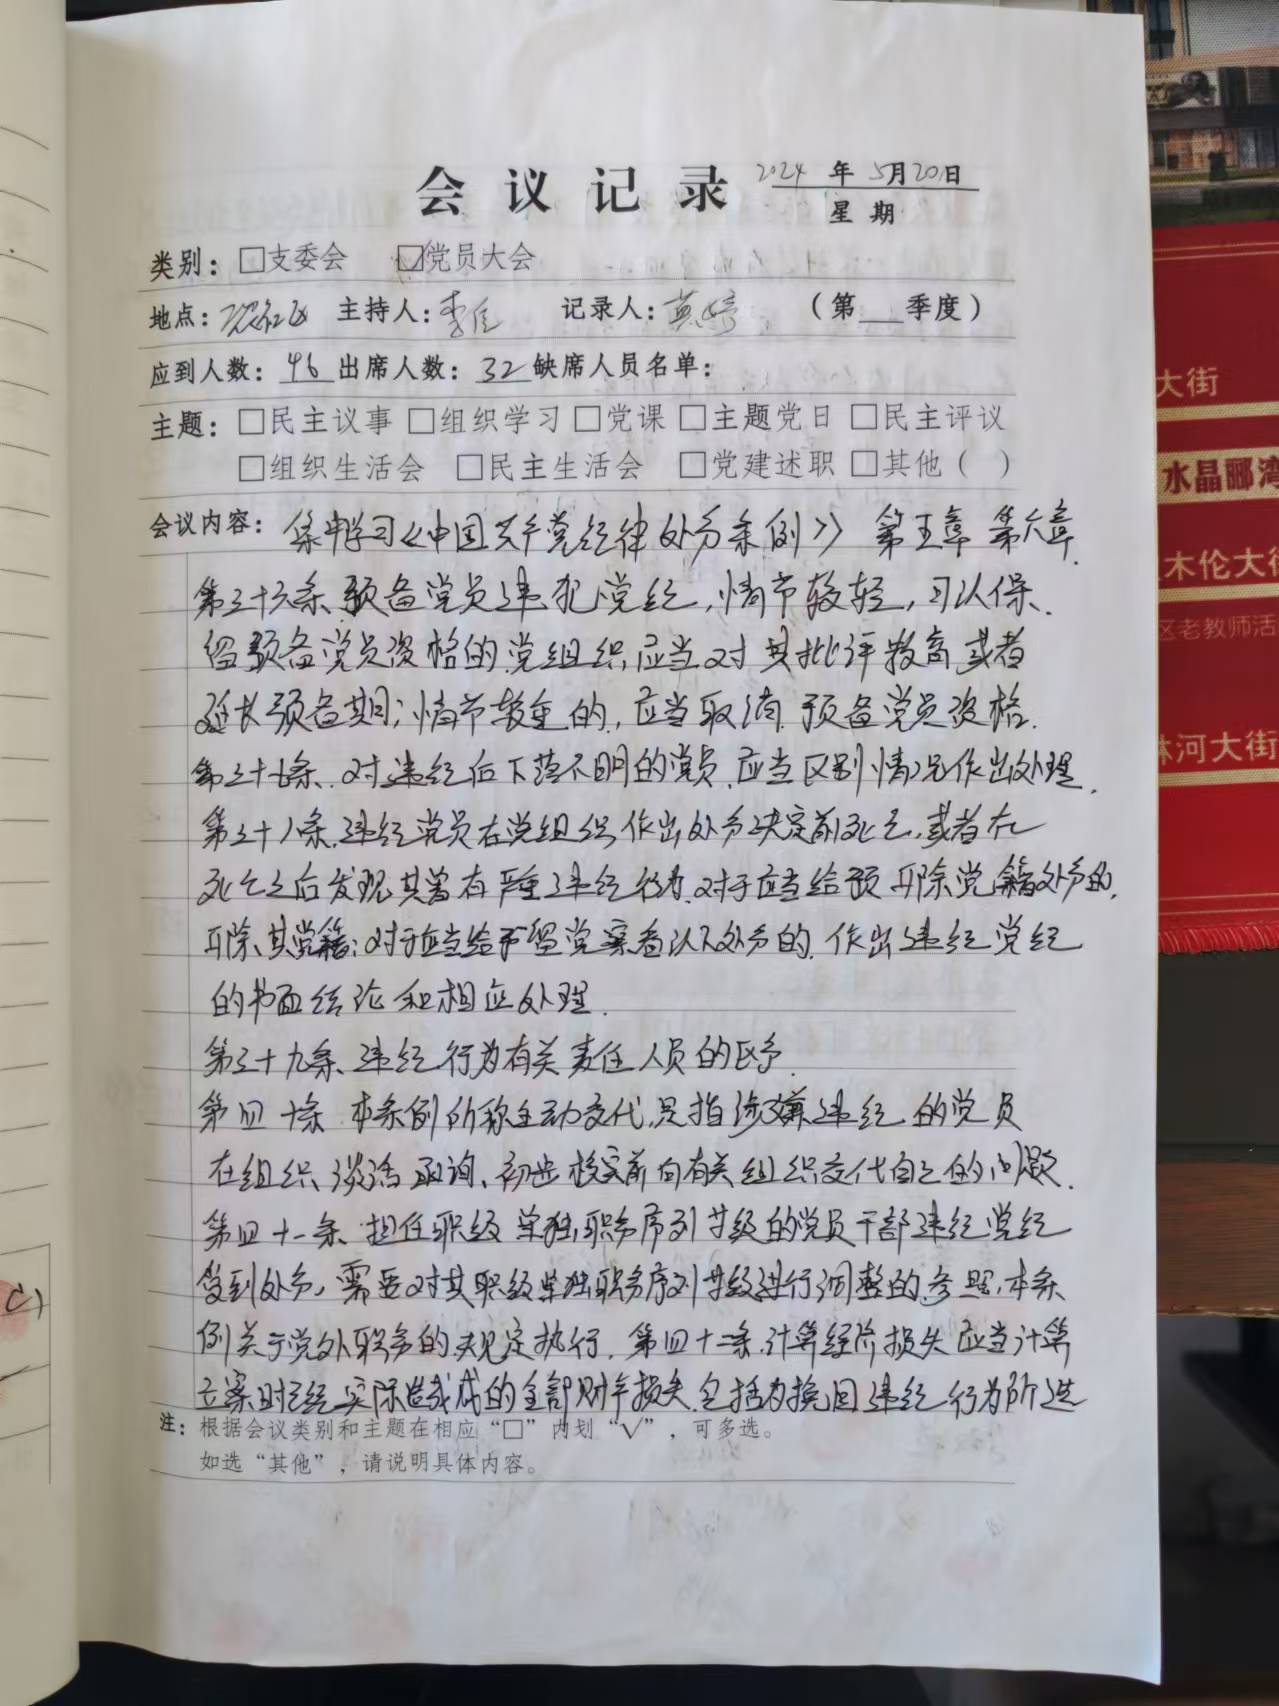 会议记录
2024年5月20日
星期
类别：□支委会 ☑党员大会
地点： 主持人：李 记录人： （第 季度）
应到人数：46 出席人数：32 缺席人员名单：
主题：□民主议事 □组织学习 □党课 □主题党日 □民主评议
□组织生活会 □民主生活会 □党建述职 □其他（ ）
会议内容：集中学习《中国共产党纪律处分条例》》第五章 第六章
第三十六条、预备党员违犯党纪，情节较轻，可以保、
留预备党员资格的党组织应当对其批评教育或者
延长预备期；情节较重的，应当取消预备党员资格.
第三十七条. 对违纪后下落不明的党员 应当区别情况作出处理.
第三十八条.违纪党员在党组织作出处分决定前死亡,或者在
死亡之后发现其曾有严重违纪行为.对于应当给予开除党籍处分的,
开除其党籍；对于应当给予留党察看以下处分的.作出违纪党纪
的书面结论和相应处理.
第三十九条、违纪行为有关责任人员的区分.
第四十条 本条例所称主动交代,是指涉嫌违纪的党员
在组织谈话函询、初步核实前向有关组织交代自己的问题.
第四十一条 担任职级 单独职务序列等级的党员干部违纪党纪
受到处分,需要对其职级单独职务序列等级进行调整的.参照本条
例关于党外职务的规定执行. 第四十二条.计算经济损失应当计算
立案时已经实际造成的全部财产损失.包括为挽回违纪行为所造
注：根据会议类别和主题在相应“□”内划“√”，可多选。
如选“其他”，请说明具体内容。
大街
水晶郦湾
木伦大街
区老教师活
林河大街